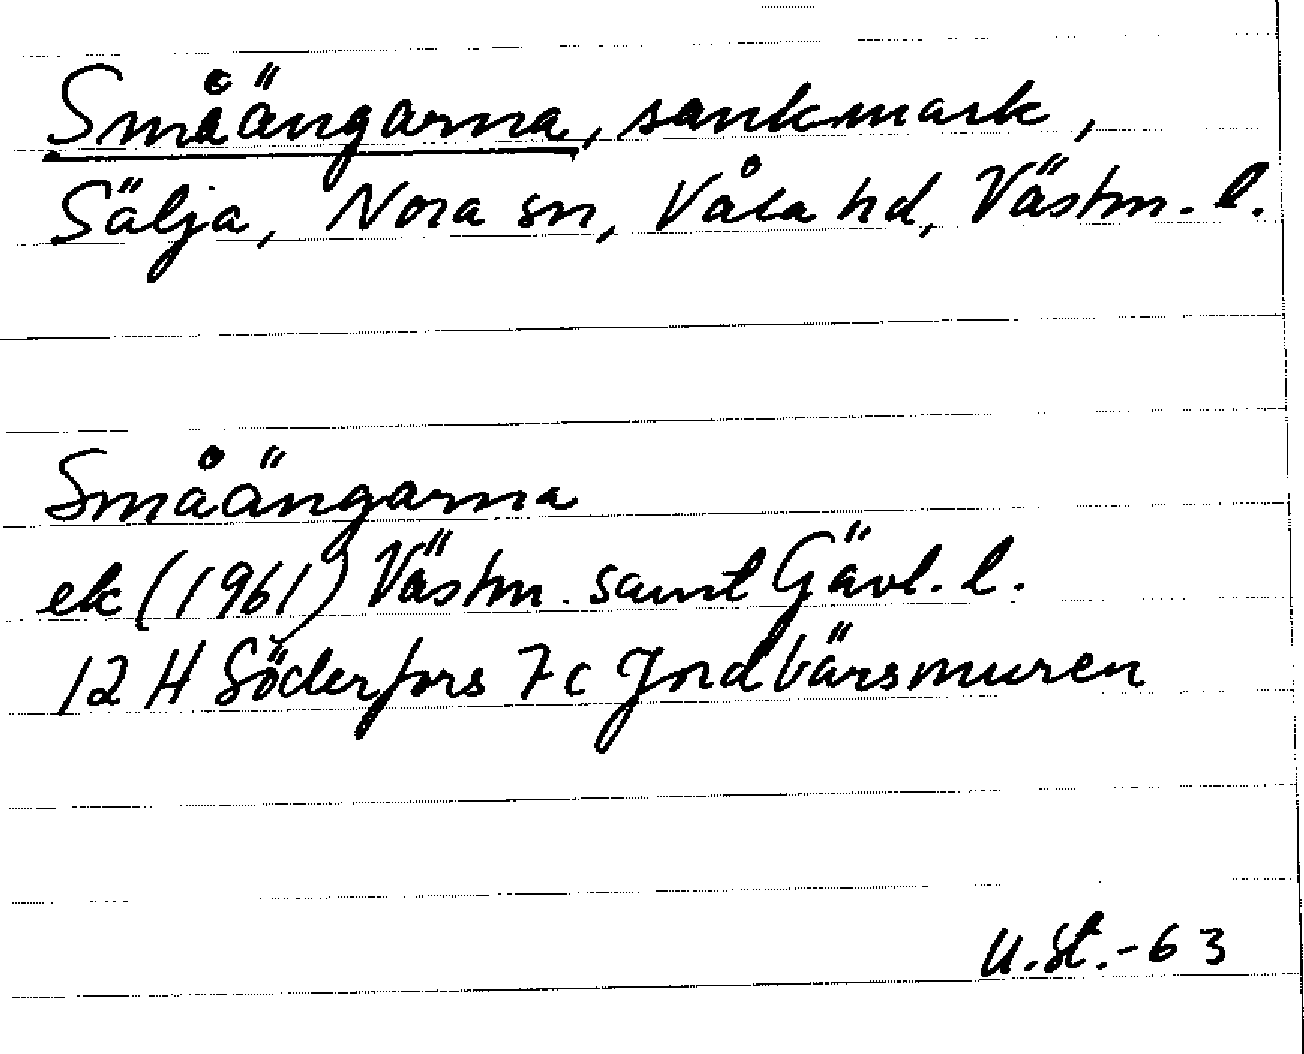 Småängarna, sankmark,
Sälja, Nora sn, Våla hd, Västm. l.
Småängarna
ek (1961) Västm. samt Gävl. l.
12 H Söderfors 7 c Jordbärsmuren
U.St.-63